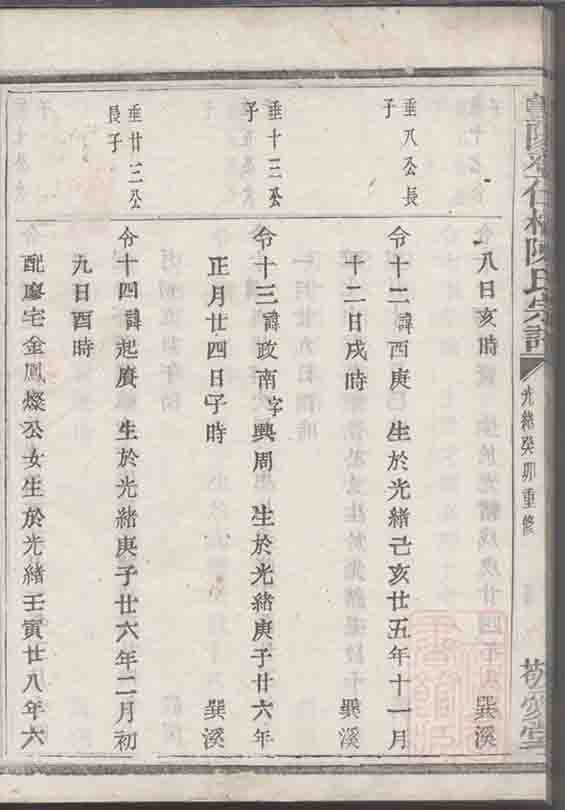 陳氏宗譜
光緒癸卯重修
敬愛堂
八日亥時
巽溪
垂八公長
子
令十二諱西庚 生於光緒己亥廿五年十一月
十二日戌時
巽溪
垂十三公
子
令十三諱政南字興周 生於光緒庚子廿六年
正月廿四日子時
巽溪
垂廿三公
長子
令十四諱起賡 生於光緒庚子廿六年二月初
九日酉時
配廖宅金鳳燦公女生於光緒壬寅廿八年六